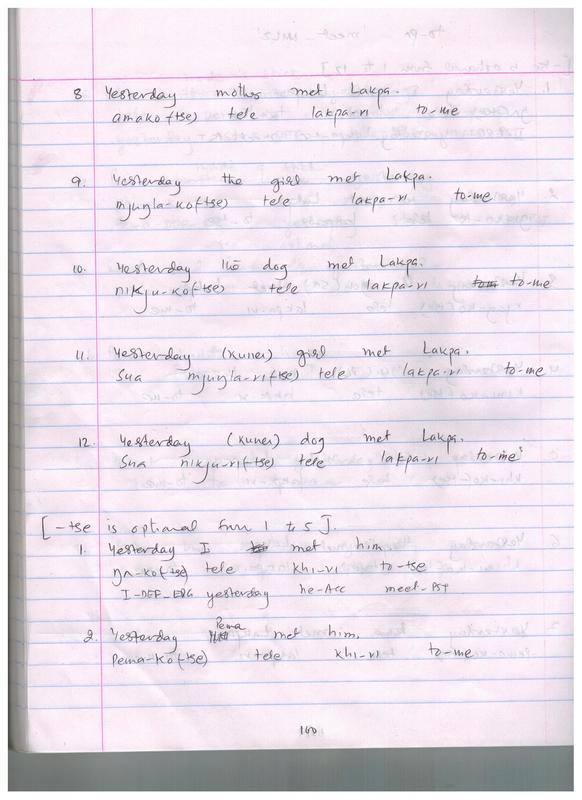 8 Yesterday mother met Lakpa.
amako(tse) tele lakpa-ri to-me
9. Yesterday the girl met Lakpa.
mjungla-ko(tse) tele lakpa-ri to-me
10. Yesterday the dog met Lakpa.
nikju-ko(tse) tele lakpa-ri to-me
11. Yesterday (kunei) girl met Lakpa.
Sua mjungla-ri(tse) tele lakpa-ri to-me
12. Yesterday (kunei) dog met Lakpa.
Sua nikju-ri(tse) tele lakpa-ri to-me
[-tse is optional from 1 to 5].
1. Yesterday I met him
ŋa-ko(tse) tele khi-ri to-tse
I-DEF-ERG yesterday he-Acc meet-PST
2. Yesterday Pema met him.
Pema-ko(tse) tele khi-ri to-me
160